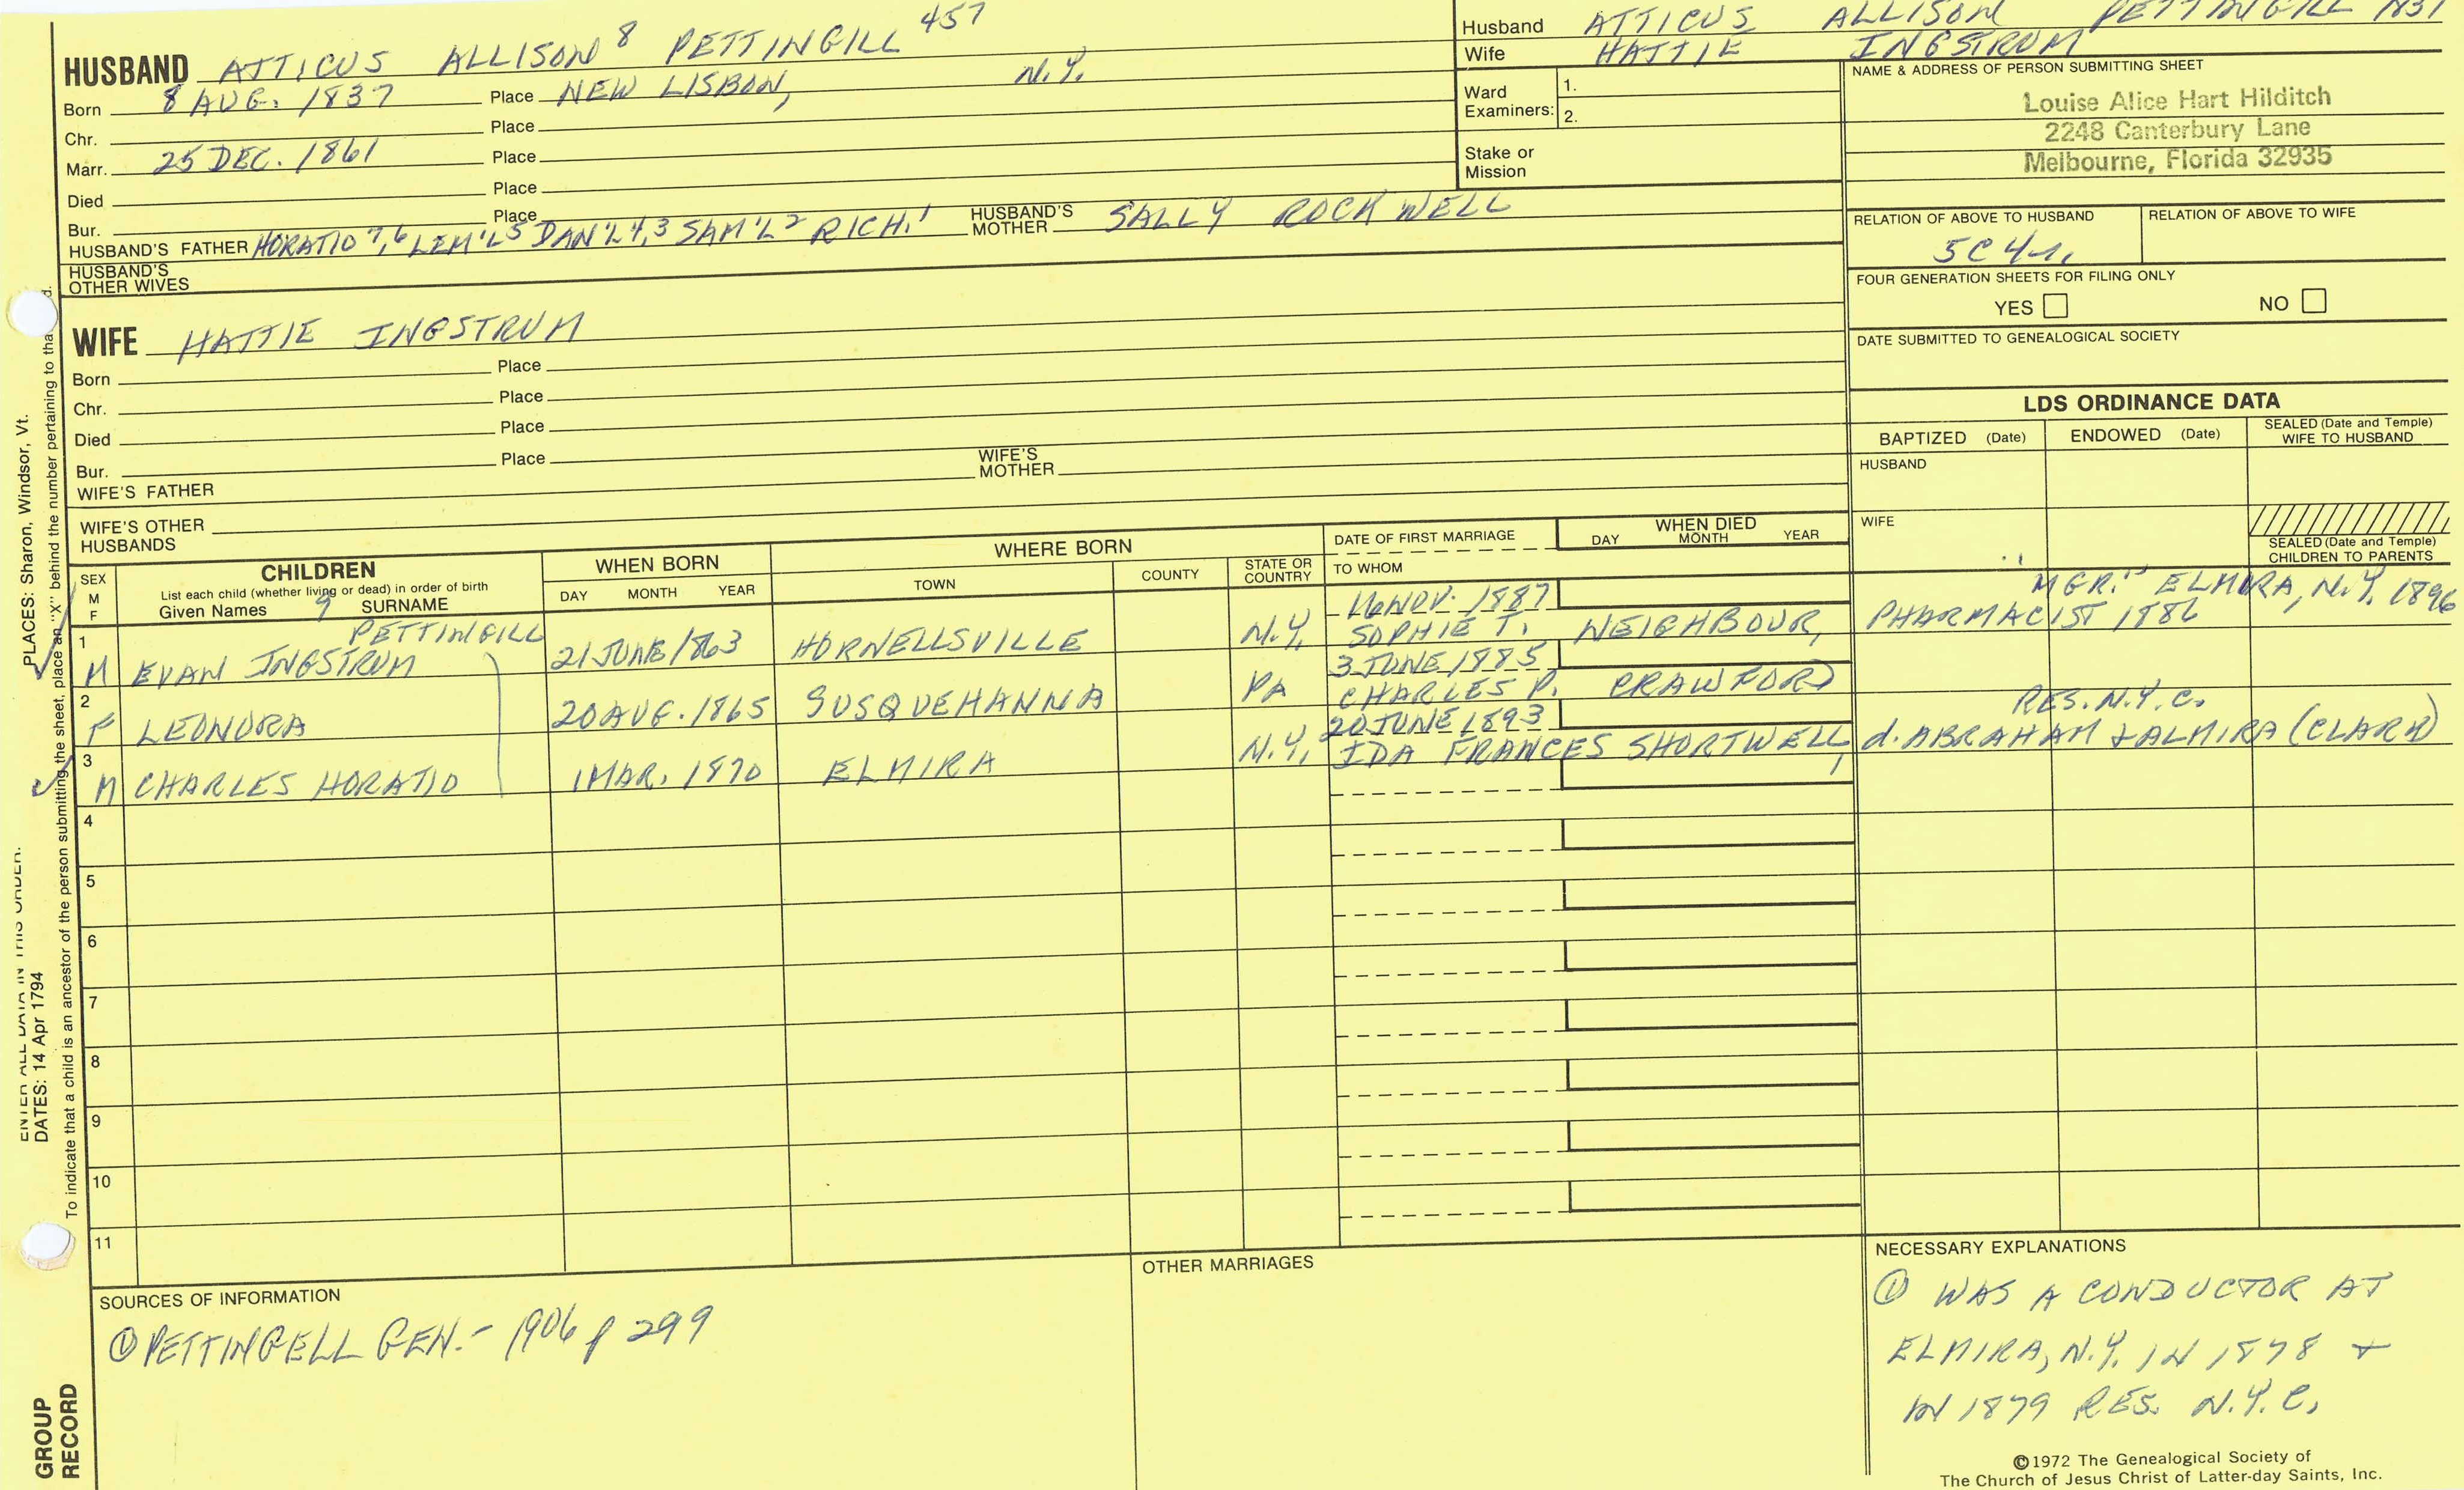 HUSBAND ATTICUS ALLISON 8 PETTINGILL 457
Born 8 AUG. 1837 Place NEW LISBON, N.Y.
Chr. Place
Marr. 25 DEC. 1861 Place
Died Place
Bur. Place
HUSBAND'S FATHER HORATIO 7,6 LEM'L 5 DAN'L 4,3 SAM'L 2 RICH. 1 HUSBAND'S MOTHER SALLY ROCKWELL
HUSBAND'S OTHER WIVES
Husband ATTICUS ALLISON PETTINGILL 1837
Wife HATTIE INGSTRUM
Ward Examiners: 1.
2.
Stake or Mission
NAME & ADDRESS OF PERSON SUBMITTING SHEET
Louise Alice Hart Hilditch
2248 Canterbury Lane
Melbourne, Florida 32935
RELATION OF ABOVE TO HUSBAND RELATION OF ABOVE TO WIFE
5C4r.
FOUR GENERATION SHEETS FOR FILING ONLY
YES NO
DATE SUBMITTED TO GENEALOGICAL SOCIETY
WIFE HATTIE INGSTRUM
Born Place
Chr. Place
Died Place
Bur. Place
WIFE'S FATHER WIFE'S MOTHER
WIFE'S OTHER HUSBANDS
LDS ORDINANCE DATA
BAPTIZED (Date) ENDOWED (Date) SEALED (Date and Temple) WIFE TO HUSBAND
HUSBAND
WIFE
SEALED (Date and Temple) CHILDREN TO PARENTS
SEX M F
CHILDREN
List each child (whether living or dead) in order of birth
Given Names 9 SURNAME
WHEN BORN
DAY MONTH YEAR
WHERE BORN
TOWN COUNTY STATE OR COUNTRY
DATE OF FIRST MARRIAGE
TO WHOM
WHEN DIED
DAY MONTH YEAR
1 PETTINGILL 16 NOV. 1887 MGR." ELMIRA, N.Y. 1896
M EVAN INGSTRUM 21 JUNE 1863 HORNELLSVILLE N.Y. SOPHIE T. NEIGHBOUR, PHARMACIST 1886
2 3 JUNE 1885
F LEONORA 20 AUG. 1865 SUSQUEHANNA PA CHARLES P. CRAWFORD
3 20 JUNE 1893 RES. N.Y.C.
M CHARLES HORATIO 1 MAR. 1870 ELMIRA N.Y. IDA FRANCES SHORTWELL, d. ABRAHAM & ALMIRA (CLARK)
4
5
6
7
8
9
10
11
SOURCES OF INFORMATION
① PETTINGELL GEN. - 1906 p 299
OTHER MARRIAGES
NECESSARY EXPLANATIONS
① WAS A CONDUCTOR AT
ELMIRA, N.Y. IN 1878 +
IN 1879 RES. N.Y.C.
©1972 The Genealogical Society of
The Church of Jesus Christ of Latter-day Saints, Inc.
PLACES: Sharon, Windsor, Vt.
ENTER ALL DATA IN THIS ORDER:
DATES: 14 Apr 1794
To indicate that a child is an ancestor of the person submitting the sheet, place an "X" behind the number pertaining to tha d.
GROUP
RECORD